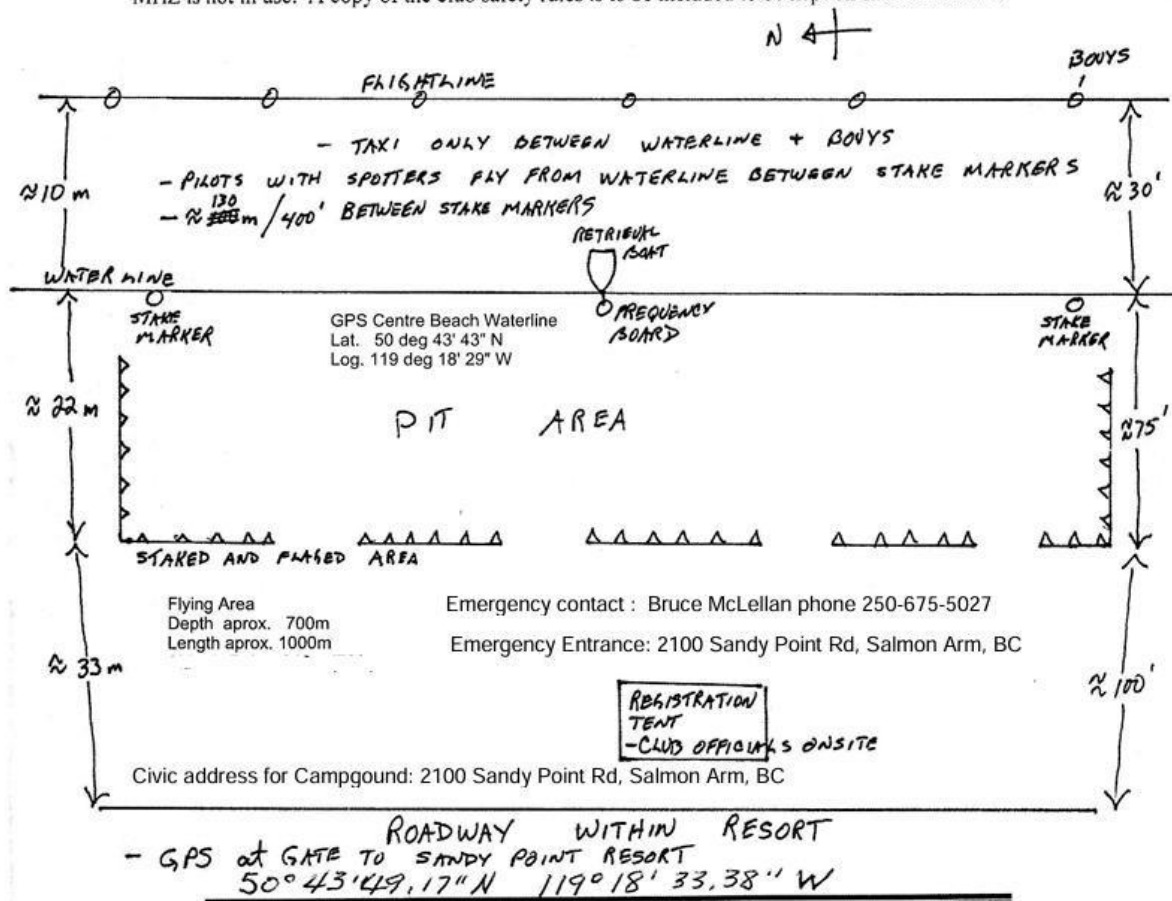 MHZ is not in use. A copy of the club safety rules is to be included
N
BOUYS
FLIGHTLINE
- TAXI ONLY BETWEEN WATERLINE + BOUYS
- PILOTS WITH SPOTTERS FLY FROM WATERLINE BETWEEN STAKE MARKERS
- ≈ 130 m / 400' BETWEEN STAKE MARKERS
≈ 10 m
≈ 30'
RETRIEVAL
BOAT
WATERLINE
STAKE
MARKER
GPS Centre Beach Waterline
Lat. 50 deg 43' 43" N
Log. 119 deg 18' 29" W
FREQUENCY
BOARD
STAKE
MARKER
≈ 22 m
PIT AREA
≈ 75'
STAKED AND FLAGED AREA
Flying Area
Depth aprox. 700m
Length aprox. 1000m
Emergency contact : Bruce McLellan phone 250-675-5027
Emergency Entrance: 2100 Sandy Point Rd, Salmon Arm, BC
≈ 33 m
≈ 100'
REGISTRATION
TENT
- CLUB OFFICIALS ONSITE
Civic address for Campgound: 2100 Sandy Point Rd, Salmon Arm, BC
ROADWAY WITHIN RESORT
- GPS at GATE TO SANDY POINT RESORT
50° 43' 49.17" N 119° 18' 33.38" W